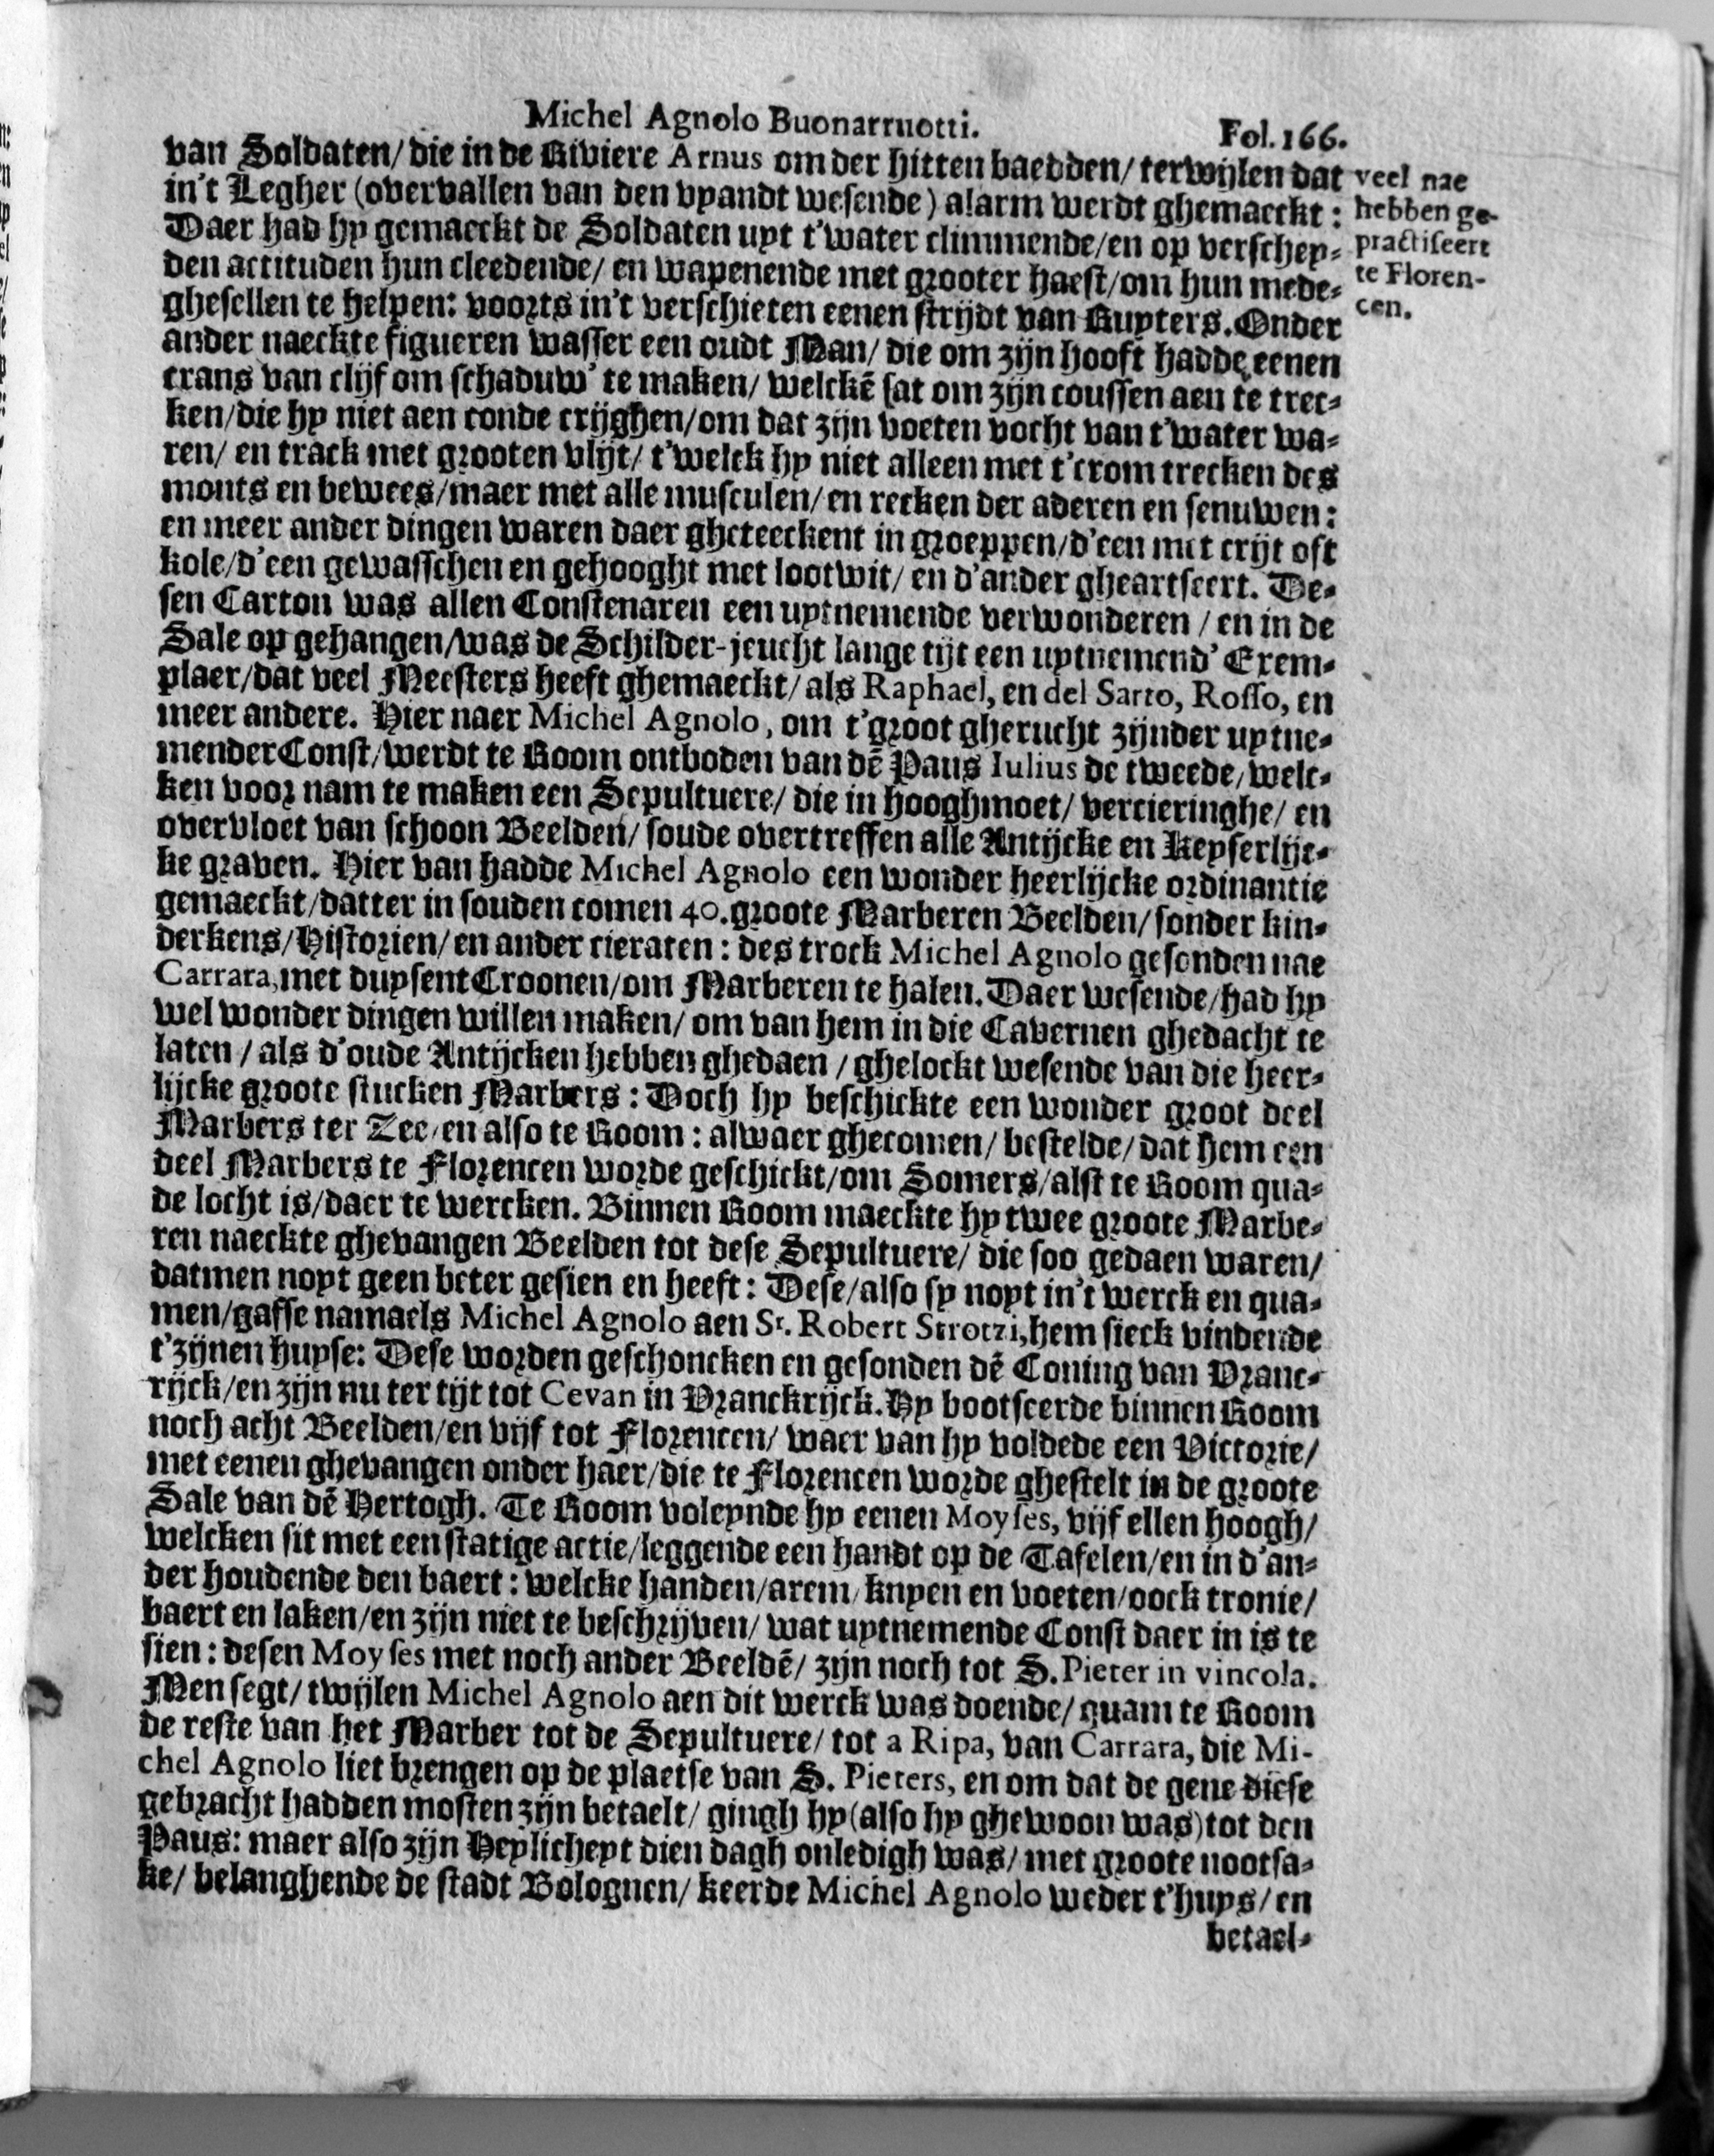 Michel Agnolo Buonarruotti.
Fol. 166.
van Soldaten/ die in de Riviere Arnus om der hitten baedden/ terwijlen dat
in't Legher (overvallen van den vyandt wesende) alarm werdt ghemaeckt:
Daer had hy gemaeckt de Soldaten uyt t'water climmende/en op verschey-
den actituden hun cleedende/ en wapenende met grooter haest/om hun mede-
ghesellen te helpen: voorts in't verschieten eenen strijdt van Ruyters. Onder
ander naeckte figueren wasser een oudt Man/ die om zijn hooft hadde eenen
crans van clijf om schaduw' te maken/ welckē sat om zijn coussen aen te trec-
ken/die hy niet aen conde crijghen/om dat zijn voeten vocht van t'water wa-
ren/ en track met grooten vlijt/ t'welck hy niet alleen met t'crom trecken des
monts en bewees/maer met alle musculen/en recken der aderen en senuwen:
en meer ander dingen waren daer gheteeckent in groeppen/d'een met crijt oft
kole/d'een gewasschen en gehooght met lootwit/ en d'ander gheartseert. De-
sen Carton was allen Constenaren een uytnemende verwonderen / en in de
Sale op gehangen/was de Schilder-jeucht lange tijt een uytnemend' Exem-
plaer/dat veel Meesters heeft ghemaeckt/ als Raphael, en del Sarto, Rosso, en
meer andere. Hier naer Michel Agnolo, om t'groot gherucht zijnder uytne-
mender Const/werdt te Room ontboden van dē Paus Iulius de tweede/welc-
ken voor nam te maken een Sepultuere/ die in hooghmoet/ vercieringhe/ en
overvloet van schoon Beelden/ soude overtreffen alle Antijcke en Keyserlijc-
ke graven. Hier van hadde Michel Agnolo een wonder heerlijcke ordinantie
gemaeckt/datter in souden comen 40. groote Marberen Beelden/ sonder kin-
derkens/Historien/en ander cieraten: des trock Michel Agnolo gesonden nae
Carrara, met duysent Croonen/om Marberen te halen. Daer wesende/had hy
wel wonder dingen willen maken/ om van hem in die Cavernen ghedacht te
laten / als d'oude Antijcken hebben ghedaen / ghelockt wesende van die heer-
lijcke groote stucken Marbers: Doch hy beschickte een wonder groot deel
Marbers ter Zee/en also te Room: alwaer ghecomen/ bestelde/ dat hem een
deel Marbers te Florencen worde geschickt/om Somers/alst te Room qua-
de locht is/daer te wercken. Binnen Room maeckte hy twee groote Marbe-
ren naeckte ghevangen Beelden tot dese Sepultuere/ die soo gedaen waren/
datmen noyt geen beter gesien en heeft: Dese/also sy noyt in't werck en qua-
men/gaffe namaels Michel Agnolo aen Sr. Robert Strotzi, hem sieck vindende
t'zijnen huyse: Dese worden geschoncken en gesonden dē Coning van Vranc-
rijck/en zijn nu ter tijt tot Cevan in Vranckrijck. Hy bootseerde binnen Room
noch acht Beelden/en vijf tot Florencen/ waer van hy voldede een Victorie/
met eenen ghevangen onder haer/die te Florencen worde ghestelt in de groote
Sale van dē Hertogh. Te Room voleynde hy eenen Moyses, vijf ellen hoogh/
welcken sit met een statige actie/leggende een handt op de Tafelen/en in d'an-
der houdende den baert: welcke handen/arem/ knyen en voeten/oock tronie/
baert en laken/en zijn niet te beschrijven/ wat uytnemende Const daer in is te
sien: desen Moyses met noch ander Beeldē/ zijn noch tot S. Pieter in vincola.
Men segt/ twijlen Michel Agnolo aen dit werck was doende/ quam te Room
de reste van het Marber tot de Sepultuere/ tot a Ripa, van Carrara, die Mi-
chel Agnolo liet brengen op de plaetse van S. Pieters, en om dat de gene diese
gebracht hadden mosten zijn betaelt/ gingh hy (also hy ghewoon was) tot den
Paus: maer also zijn Heylicheyt dien dagh onledigh was/ met groote nootsa-
ke/ belanghende de stadt Bolognen/ keerde Michel Agnolo weder t'huys/ en
betael-
veel nae
hebben ge-
practiseert
te Floren-
cen.